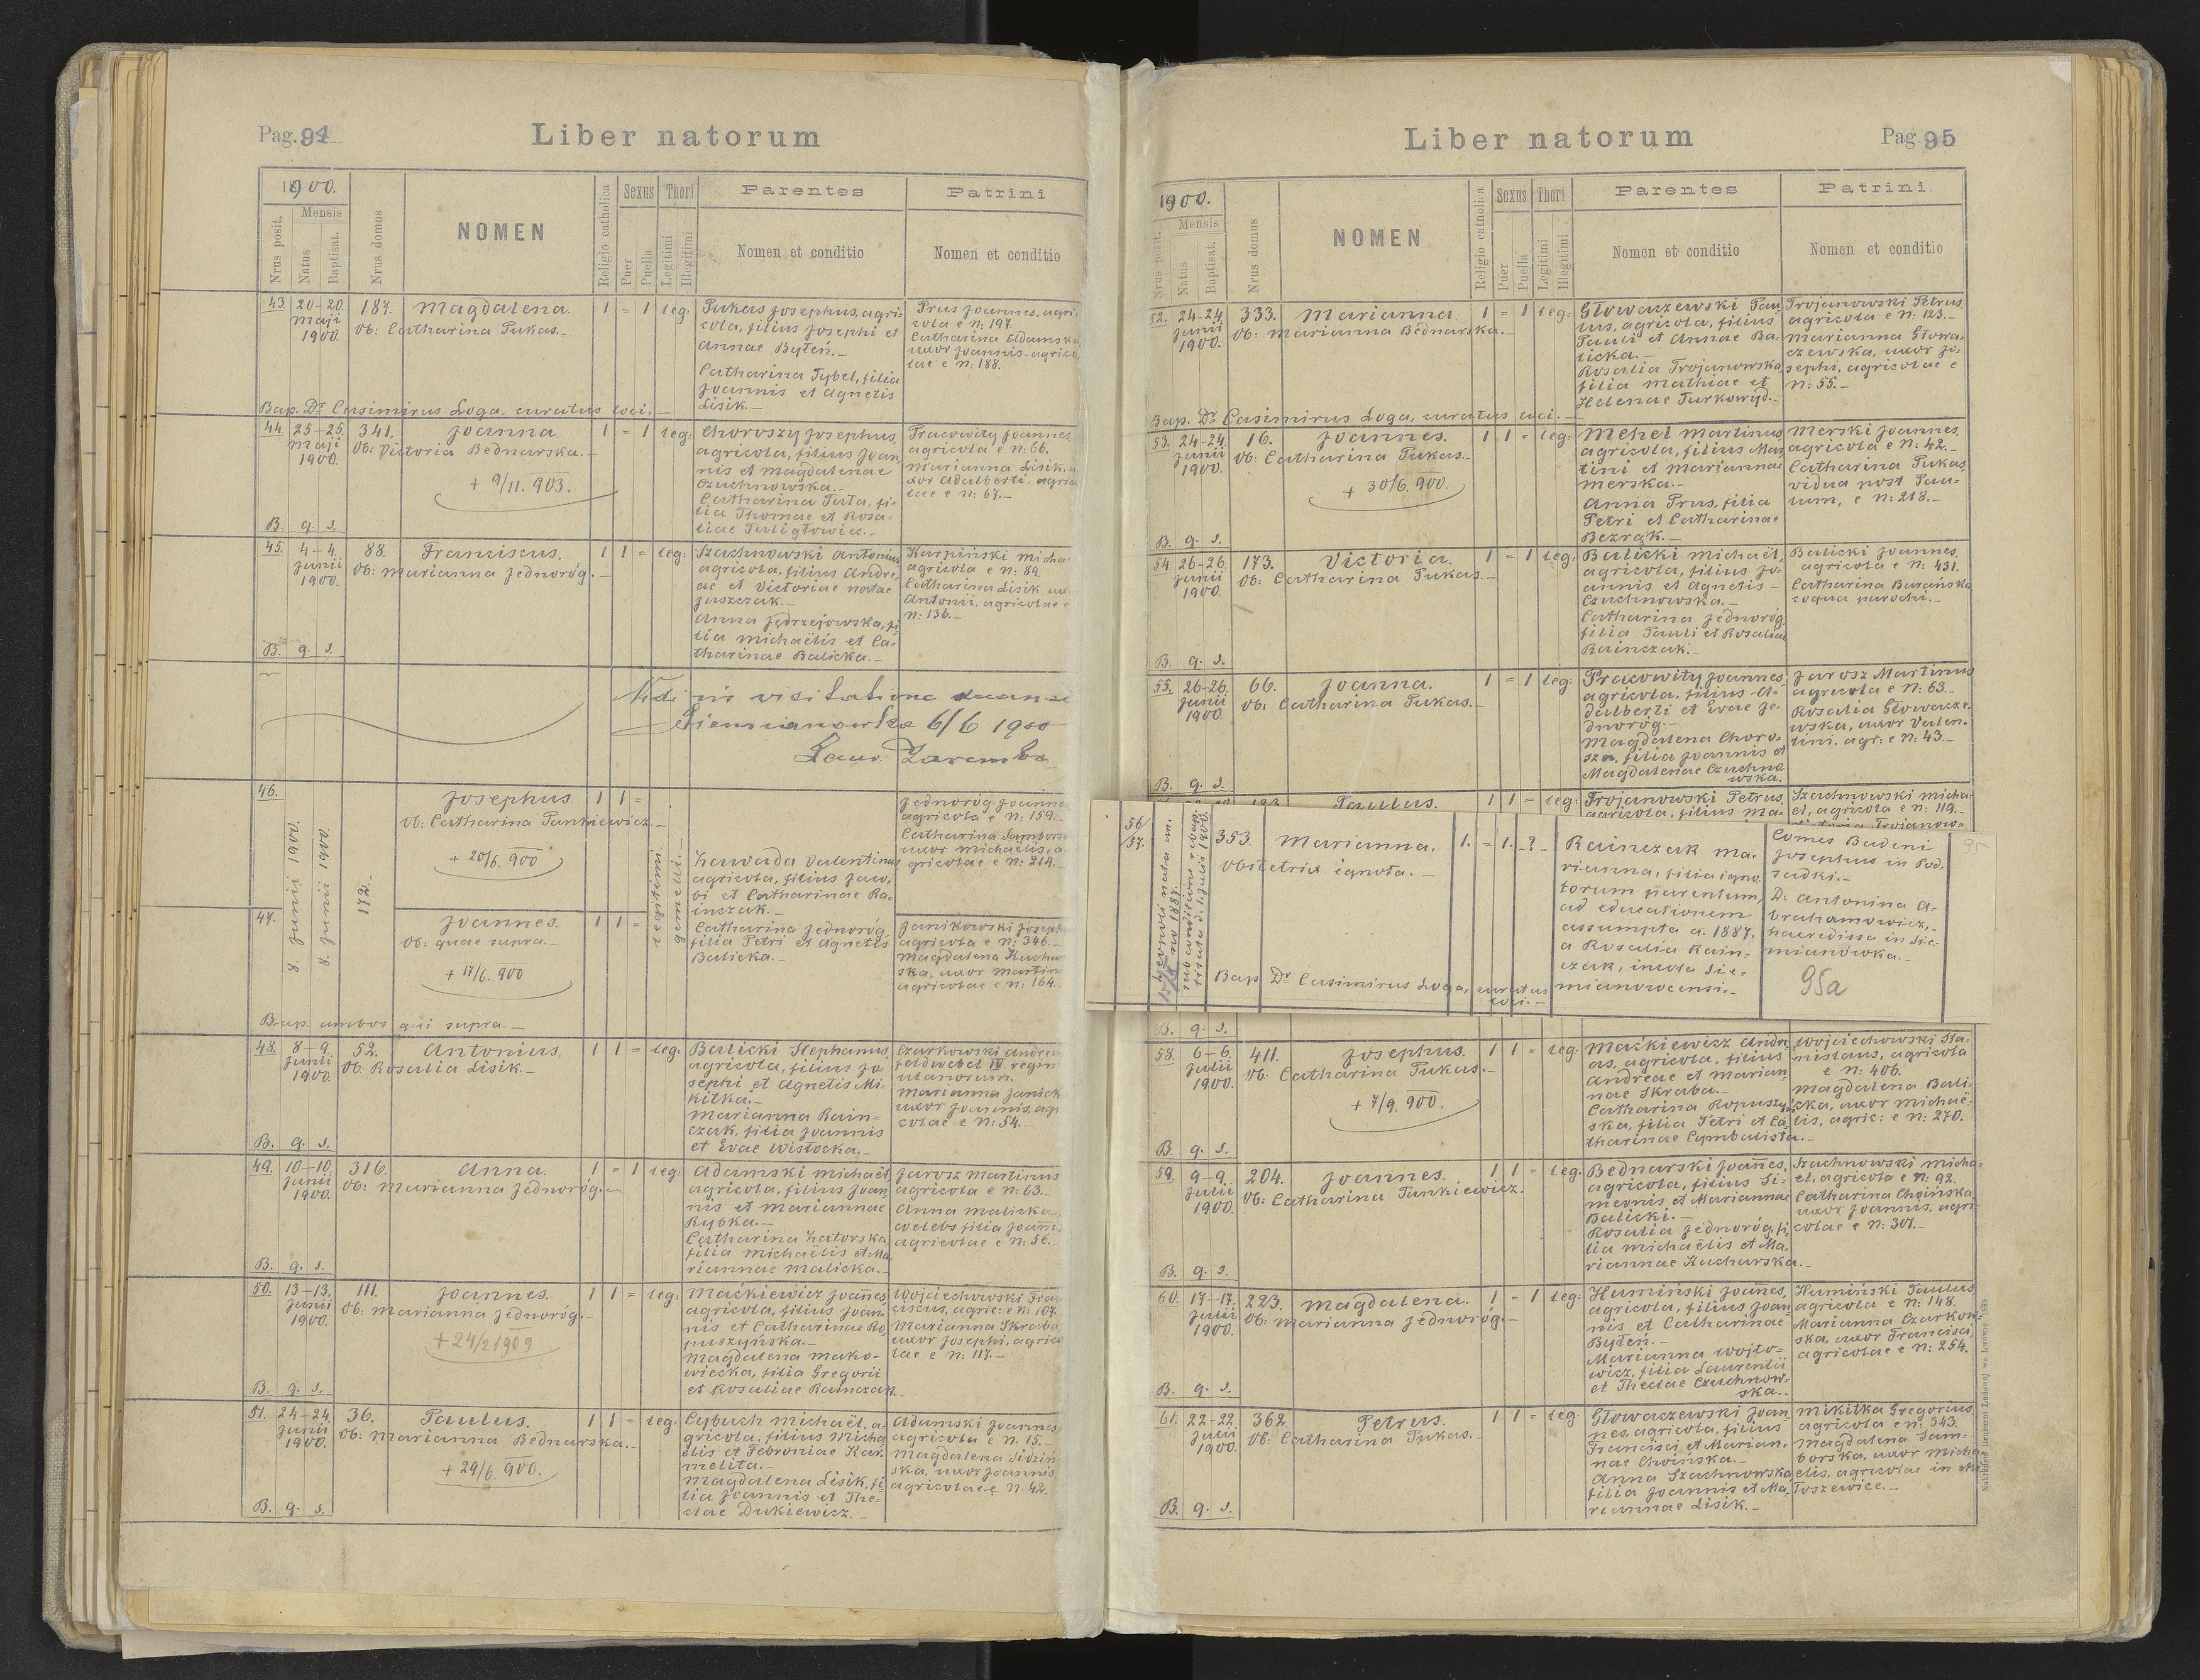 Pag. 94
Liber natorum
1900.
Nrus posit.
Mensis
Natus
Baptisat.
Nrus domus
NOMEN
Religio catholica
Sexus
Puer
Puella
Thori
Legitimi
Illegitimi
Parentes
Nomen et conditio
Patrini
Nomen et conditio
43 20-20. Maji 1900. 187. Magdalena. 1 = 1 leg:
Ob: Catharina Pukas.-
Pukas Josephus, agri-
cola, filius Josephi et
Annae Byteń.-
Catharina Tybel, filia
Joannis et Agnetis
Lisik.-
Prus Joannes, agri-
cola e N: 197.
Catharina Adamska
uxor Joannis agrico-
lae e N: 188.
Bap. Dr Casimirus Loga, curatus loci.-
44. 25-25. Maji 1900. 341. Joanna. 1 = 1 leg:
Ob: Victoria Bednarska.-
+ 9/11. 903.
Choroszy Josephus,
agricola, filius Joan-
nis et Magdalenae
Czuchnowska.-
Catharina Tuta, fi-
lia Thomae et Rosa-
liae Puligłowicz.-
Pracowity Joannes,
agricola e N: 66.
Marianna Lisik, u-
xor Adalberti, agrico-
lae e N: 67.-
B. q. s.
45. 4-4. Junii 1900. 88. Franciscus. 1 1 = leg:
Ob: Marianna Jednoróg.-
Szachnowski Antonius,
agricola, filius Andre-
ae et Victoriae natae
Juszczak.-
Anna Jędrzejowska, fi-
lia Michaëlis et Ca-
tharinae Balicka.-
Karpiński Micha
agricola e N: 89.
Catharina Lisik, ux
Antonii, agricolae e
N: 136.-
B. q. s.
Vidi in visitatione decan
Siemianowka 6/6 1900
Laur. Zaremba
46. Josephus. 1 1 =
Ob: Catharina Pankiewicz.-
+ 20/6. 900
Jednoróg Joanne
agricola e N: 159.-
Catharina Sambors
uxor Michaëlis, a-
gricolae e N: 214.-
8. Junii 1900.
8. Junii 1900.
172.-
legitimi.
gemelli.-
Zawada Valentinus,
agricola, filius Jaco-
bi et Catharinae Ra-
inczak.-
Catharina Jednoróg,
filia Petri et Agnetis
Balicka.-
47. Joannes. 1 1 =
Ob: quae supra.-
+ 17/6. 900
Janikowski Joseph
agricola e N: 346.-
Magdalena Kuchar
ska, uxor Martini
agricolae e N: 164.
Bap. ambos qui supra.-
48. 8-9. Junii 1900. 52. Antonius. 1 1 = leg:
Ob: Rosalia Lisik.-
Balicki Stephanus,
agricola, filius Jo-
sephi et Agnetis Mi-
kitka.-
Marianna Rain-
czak, filia Joannis
et Evae Wisłocka.-
Czarkowski Andreas
feldwebel IV regim
ulanorum.
Marianna Janick
uxor Joannis, agri
colae e N: 54.-
B. q. s.
49. 10-10. Junii 1900. 316. Anna. 1 = 1 leg:
Ob: Marianna Jednoróg.-
Adamski Michaël,
agricola, filius Joan-
nis et Mariannae
Rybka.-
Catharina Zatorska,
filia Michaëlis et Ma-
riannae Malicka.-
Jarosz Martinus
agricola e N: 63.-
Anna Malicka,
coelebs filia Joann.
agricolae e N: 56.-
B. q. s.
50. 13-13. Junii 1900. 111. Joannes. 1 1 = leg:
Ob: Marianna Jednoróg.-
+ 24/2 1909
Maćkiewicz Joannes,
agricola, filius Joan-
nis et Catharinae Ro-
puszyńska.-
Magdalena Mako-
wiecka, filia Gregorii
et Rosaliae Rainczak.-
Wojciechowski Fran
ciscus, agric: e N: 107.
Marianna Skraba
uxor Josephi, agrico
lae e N: 117.-
B. q. s.
51. 24-24. Junii 1900. 36. Paulus. 1 1 = leg:
Ob: Marianna Bednarska.-
+ 29/6. 900.
Cybuch Michaël, a-
gricola, filius Micha-
ëlis et Febroniae Kar-
melita.-
Magdalena Lisik, fi-
lia Joannis et The-
clae Dukiewicz.-
Adamski Joannes
agricola e N. 15.-
Magdalena Sidziń
ska, uxor Joannis,
agricolae e N: 42.
B. q. s.
Liber natorum
Pag 95
1900.
Nrus posit.
Mensis
Natus
Baptisat.
Nrus domus
NOMEN
Religio catholica
Sexus
Puer
Puella
Thori
Legitimi
Illegitimi
Parentes
Nomen et conditio
Patrini
Nomen et conditio
52. 24-24. Junii 1900. 333. Marianna. 1 = 1 leg:
Ob: Marianna Bednarska.-
Głowaczewski Pau-
lus, agricola, filius
Pauli et Annae Ba-
licka.-
Rosalia Trojanowska,
filia Mathiae et
Helenae Turkowyd.-
Trojanowski Petrus,
agricola e N: 123.-
Marianna Głowa-
czewska, uxor Jo-
sephi, agricolae e
N: 55.-
Bap. Dr Casimirus Loga, curatus loci.-
53. 24-24. Junii 1900. 16. Joannes. 1 1 = leg:
Ob: Catharina Pukas.-
+ 30/6. 900.
Mehel Martinus,
agricola, filius Mar-
tini et Mariannae
Merska.-
Anna Prus, filia
Petri et Catharinae
Bezrąk.-
Merski Joannes,
agricola e N: 42.
Catharina Pukas,
vidua post Pau-
lum, e N: 218.-
B. q. s.
54. 26-26. Junii 1900. 173. Victoria. 1 = 1 leg:
Ob: Catharina Pukas.-
Balicki Michaël,
agricola, filius Jo-
annis et Agnetis-
Czuchnowska.-
Catharina Jednoróg,
filia Pauli et Rosaliae
Rainczak.-
Balicki Joannes,
agricola e N: 431.
Catharina Barańska
coqua parochi.-
B. q. s.
55. 26-26. Junii 1900. 66. Joanna. 1 = 1 leg:
Ob: Catharina Pukas.-
Pracowity Joannes,
agricola, filius A-
dalberti et Evae Je-
dnoróg.-
Magdalena Choro-
szn, filia Joannis et
Magdalenae Czuchno-
wska.
Jarosz Martinus
agricola e N: 63.-
Rosalia Głowacze-
wska, uxor Valen-
tini, agr: e N: 43.-
B. q. s.
Paulus. 1 1 = leg:
Trojanowski Petrus,
agricola, filius Ma-
Szachnowski Micha-
el, agricola e N: 119.
Trojanow-
56/57. 353. Marianna. 1. = 1. -?-
Obstetrix ignota.-
sub conditione rebap-
tisata d. 1. Julii 1900.
Rainczak Ma-
rianna, filia igno-
torum parentum,
ad educationem
assumpta a. 1887.
a Rosalia Rain-
czak, incola Sie-
mianoweensi.-
Comes Badeni
Josephus in Pod-
sadki.-
D. Antonina A-
brahamowicz,-
haeredissa in Sie-
mianówka.-
95a
95
Bap Dr Casimirus Loga, curatus
loci.-
B. q. s.
58. 6-6. Julii 1900. 411. Josephus. 1 1 = leg:
Ob: Catharina Pukas.-
+ 7/9. 900.
Maćkiewicz Andre-
as, agricola, filius
Andreae et Marian-
nae Skraba.-
Catharina Ropuszyń-
ska, filia Petri et Ca-
tharinae Cymbalista.-
Wojciechowski Sta-
nislaus, agricola
e N: 406.
Magdalena Bali-
cka, uxor Michaë-
lis, agric: e N: 270.
B. q. s.
59. 9-9. Julii 1900. 204. Joannes. 1 1 = leg:
Ob: Catharina Pankiewicz.
Bednarski Joannes,
agricola, filius Si-
meonis et Mariannae
Balicki.-
Rosalia Jednoróg, fi-
lia Michaëlis et Ma-
riannae Kucharska.-
Szachnowski Micha-
el, agricola e N: 92.
Catharina Choińska,
uxor Joannis, agri-
colae e N: 301.-
B. q. s.
60. 17-17. Julii 1900. 223. Magdalena. 1 = 1 leg:
Ob: Marianna Jednoróg.-
Humiński Joannes,
agricola, filius Joan-
nis et Catharinae
Byteń.-
Marianna Wojto-
wicz, filia Laurentii
et Theclae Czuchnow-
ska.-
Humiński Paulus
agricola e N: 148.
Marianna Czarkow-
ska, uxor Francisci,
agricolae e N: 254.
B. q. s.
61. 22-22. Julii 1900. 362. Petrus. 1 1 = leg:
Ob: Catharina Pukas.-
Głowaczewski Joan-
nes, agricola, filius
Francisci et Marian-
nae Choińska.-
Anna Szachnowska,
filia Joannis et Ma-
riannae Lisik.-
Mikitka Gregorius,
agricola e N: 343.
Magdalena Sam-
borska, uxor Micha-
elis, agricolae in
Toszewice.-
B. q. s.